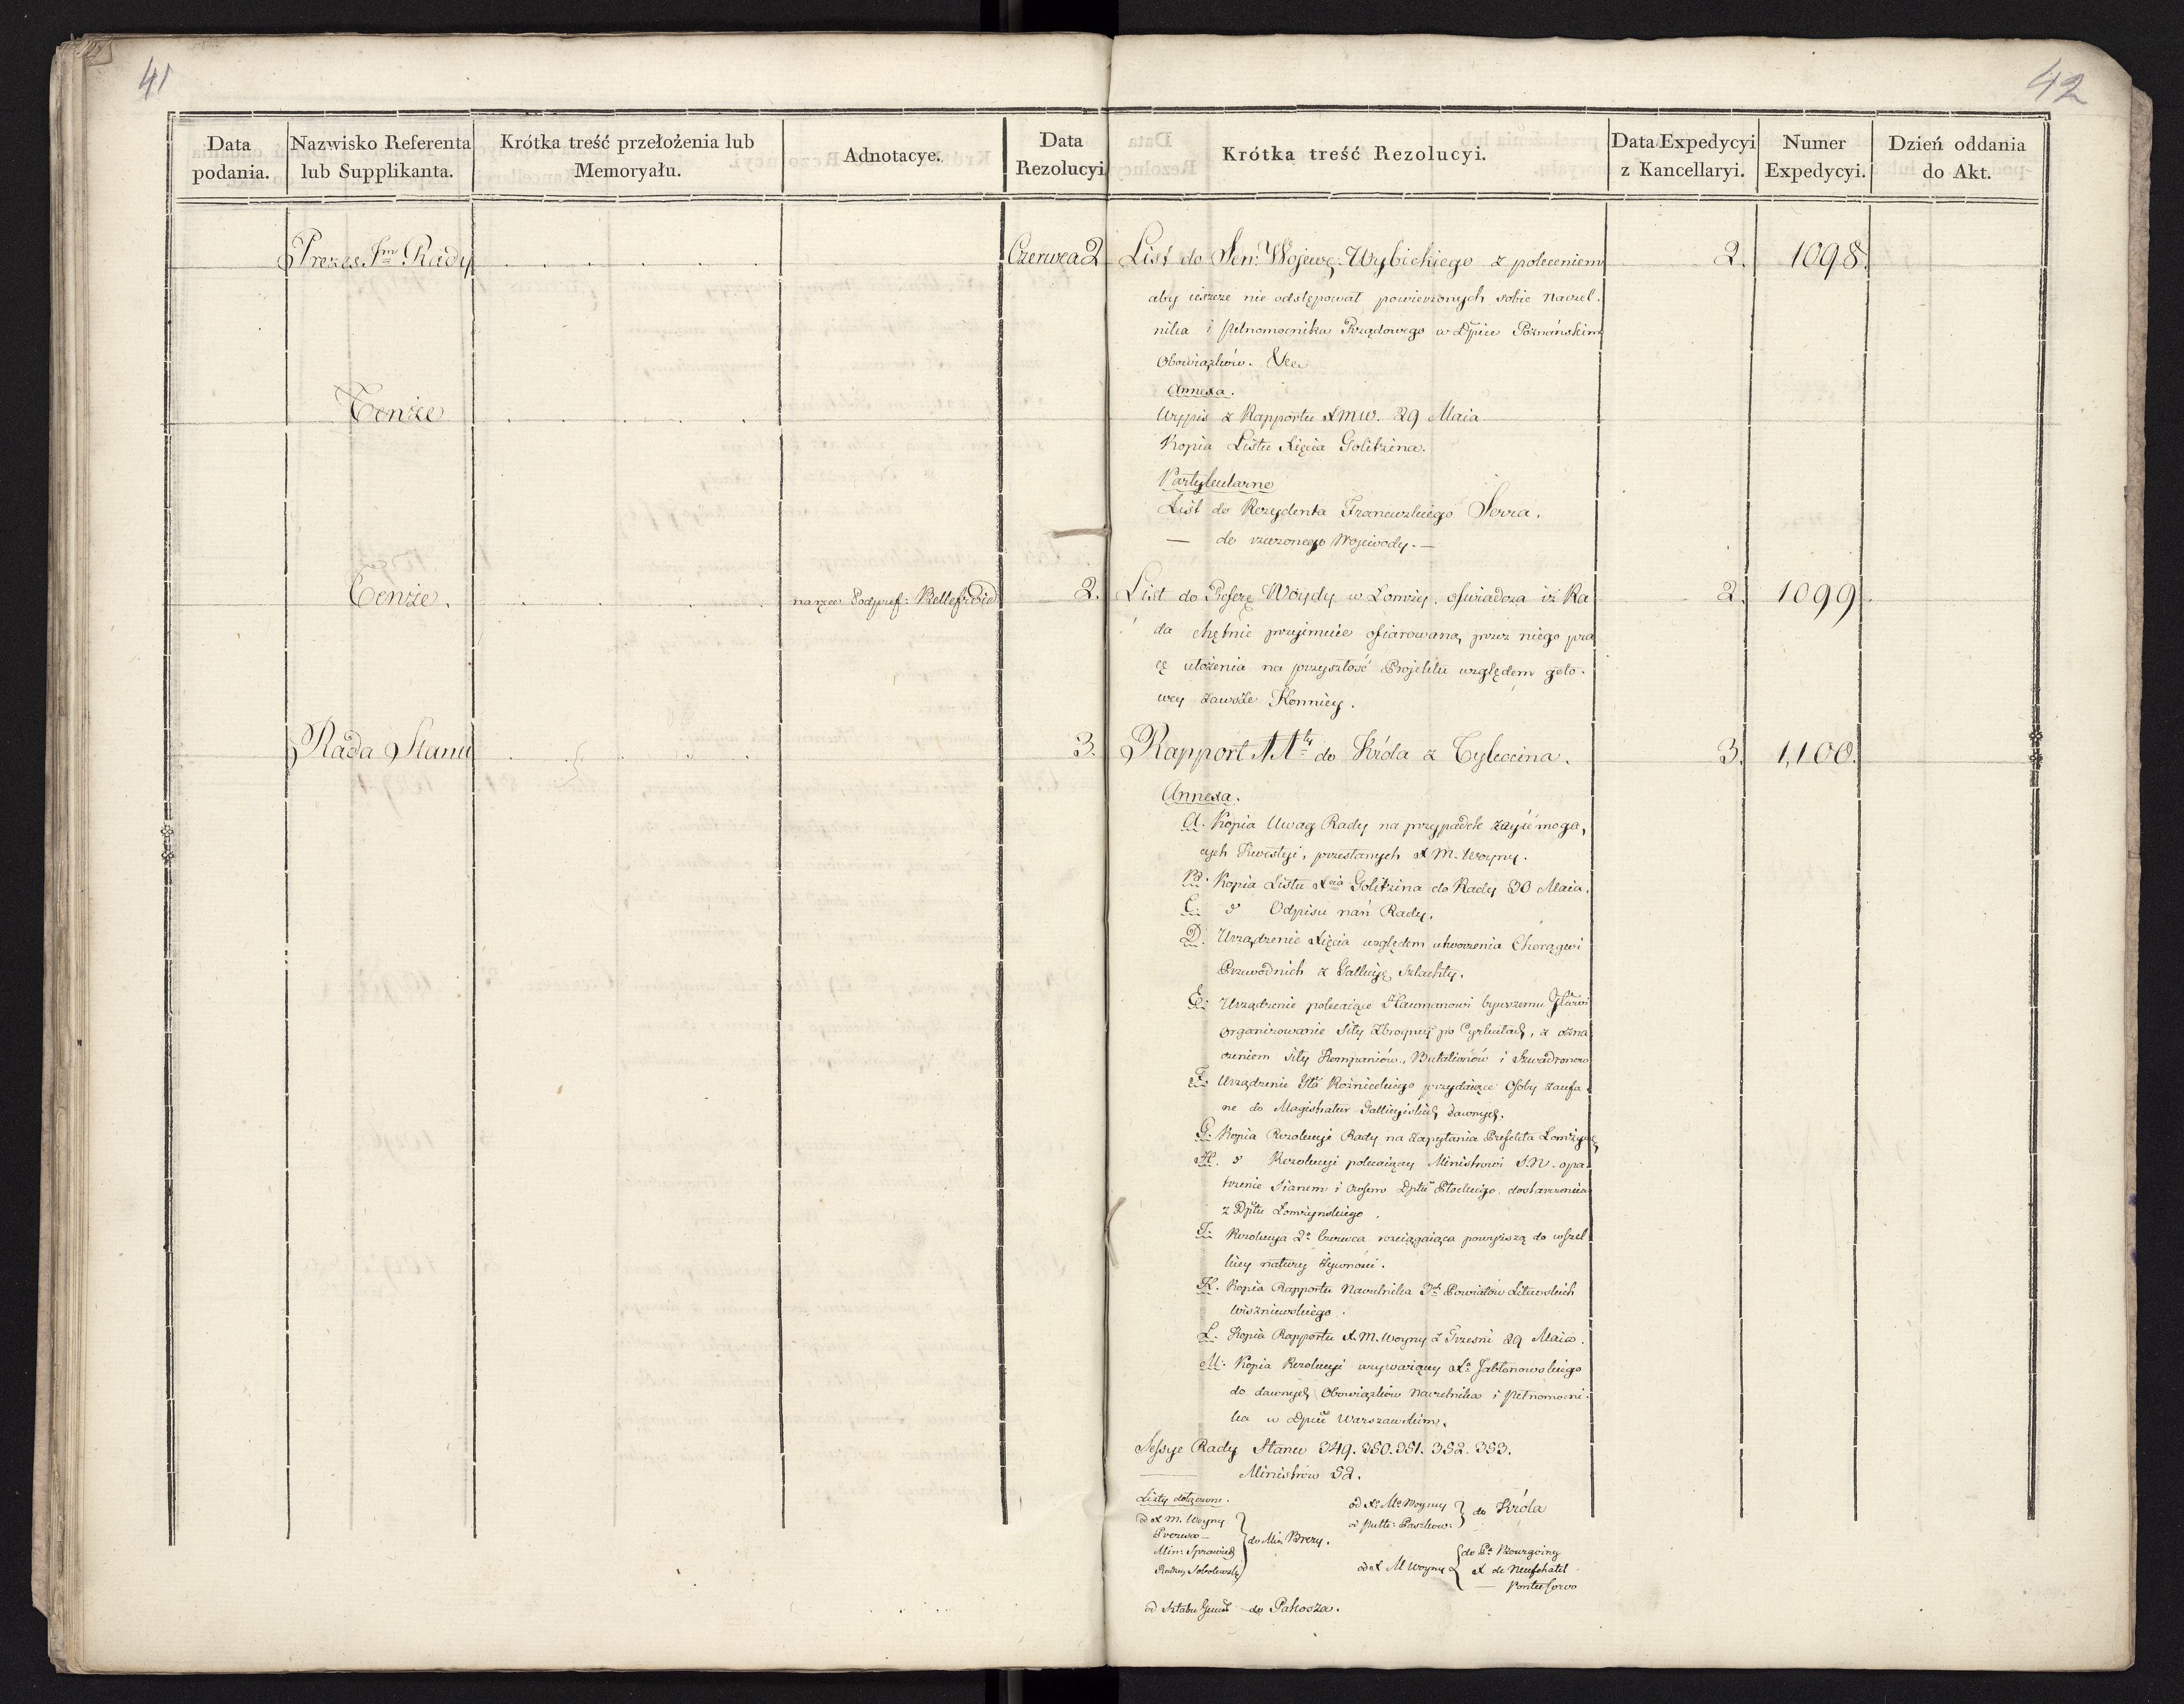 41
42
Data podania.
Nazwisko Referenta lub Supplikanta.
Krótka treść przełożenia lub Memoryału.
Adnotacye.
Data Rezolucyi
Krótka treść Rezolucyi.
Data Expedycyi z Kancellaryi.
Numer Expedycyi.
Dzień oddania do Akt.
Prezes Rady
Czerwca 2
List do Sen: Wojewę: Wybickiego z poleceniem
2.
1098.
aby ieszcze nie odstępował powierzonych sobie Naczel-
nika i pełnomocnika Rządowego w Dpcie Poznańskim
Obowiązków.
Annexa.
Tenże
Wypis z Rapportu XMW. 29 Maia
Kopia Listu Xięcia Golitzina.
Partykularne
List do Rezydenta Francuzkiego Serra.
— do rzeczonego Wojewody. —
Tenże.
na ręce Podpref:
2.
List do Prefere Woydy w Łomży, oświadcza iż Ra
2.
1099
da chętnie przyimuie ofiarowaną przez niego pra
cę ułożenia na przyszłość Projektu względem goto-
wey zawsze Konnicy.
Rada Stanu
3.
Rapport do Króla z Tykocina.
3.
1,100.
Annexa.
A. Kopia Uwag Rady na przypadek zayść mogą,
cych Kwestyi, przesłanych X M. Woyny.
B. Kopia Listu Xcia Golitzina do Rady 30 Maia.
C. Odpisu nań Rady.
D. Urządzenie Xięcia względem utworzenia Chorągwi
Przewodnich z Gallicyi Szlachty.
E. Urządzenie polecaiące Haumanowi bywszemu
Organizowanie Siły Zbroyney po Cyrkułach, z ozna
czeniem siły Kompaniów, Batalionów i Szwadronow
F. Urządzenie Gła Rożnieckiego przydaiące Osoby zaufa
ne do Magistratur Gallicyiskich dawnych.
G. Kopia Rezolucyi Rady na zapytania Prefekta Łomżyńs
H. Rezolucyi polecaiącey Ministrowi S.W. opa
trzenie Sianem i Owsem Dptu Płockiego, dostarczenia
z Dptu Łomżynskiego.
I. Rezolucya 2o Czerwca rozciągaiąca powyższą do wszel
kiey natury Żywności.
K. Kopia Rapportu Naczelnika Powiatów Litewskich
Wiszniewskiego.
L. Kopia Rapportu X.M. Woyny z Trzesni 29 Maia.
M. Kopia Rezolucyi wzywaiącey Xa Jabłonowskiego
do dawnych Obowiązków Naczelnika i Pełnomocni-
ka w Dpcie Warszawskim.
Sessye Rady Stanu 349. 350. 351. 352. 353.
Ministrów 52.
Listy dołączone.
od X M. Woyny
Prezesa —
Min: Sprawied
Radzcy Sobolewsk
do Min Brezy.
od Xa Ma Woyny
do Króla
od X M Woyny
X de Neufchatel
— Ponte Corvo
od Sztabu do Pakosza.